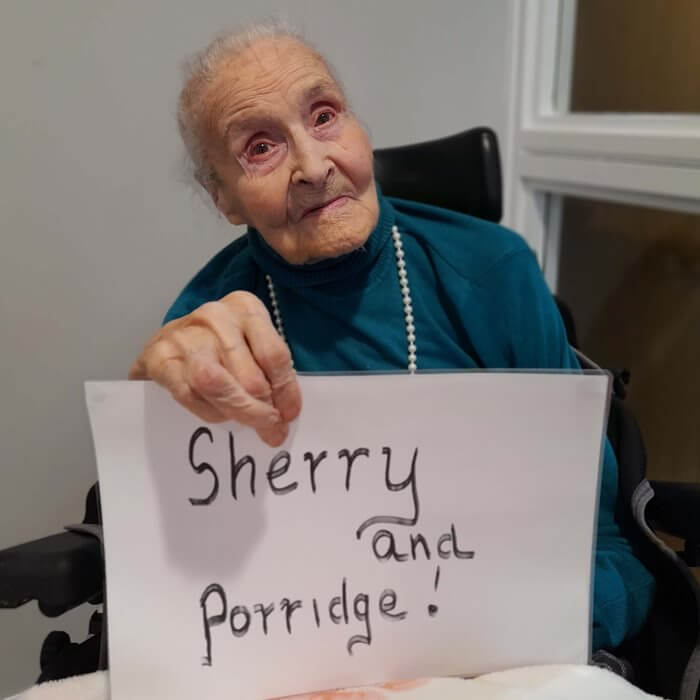 Sherry
and
Porridge!